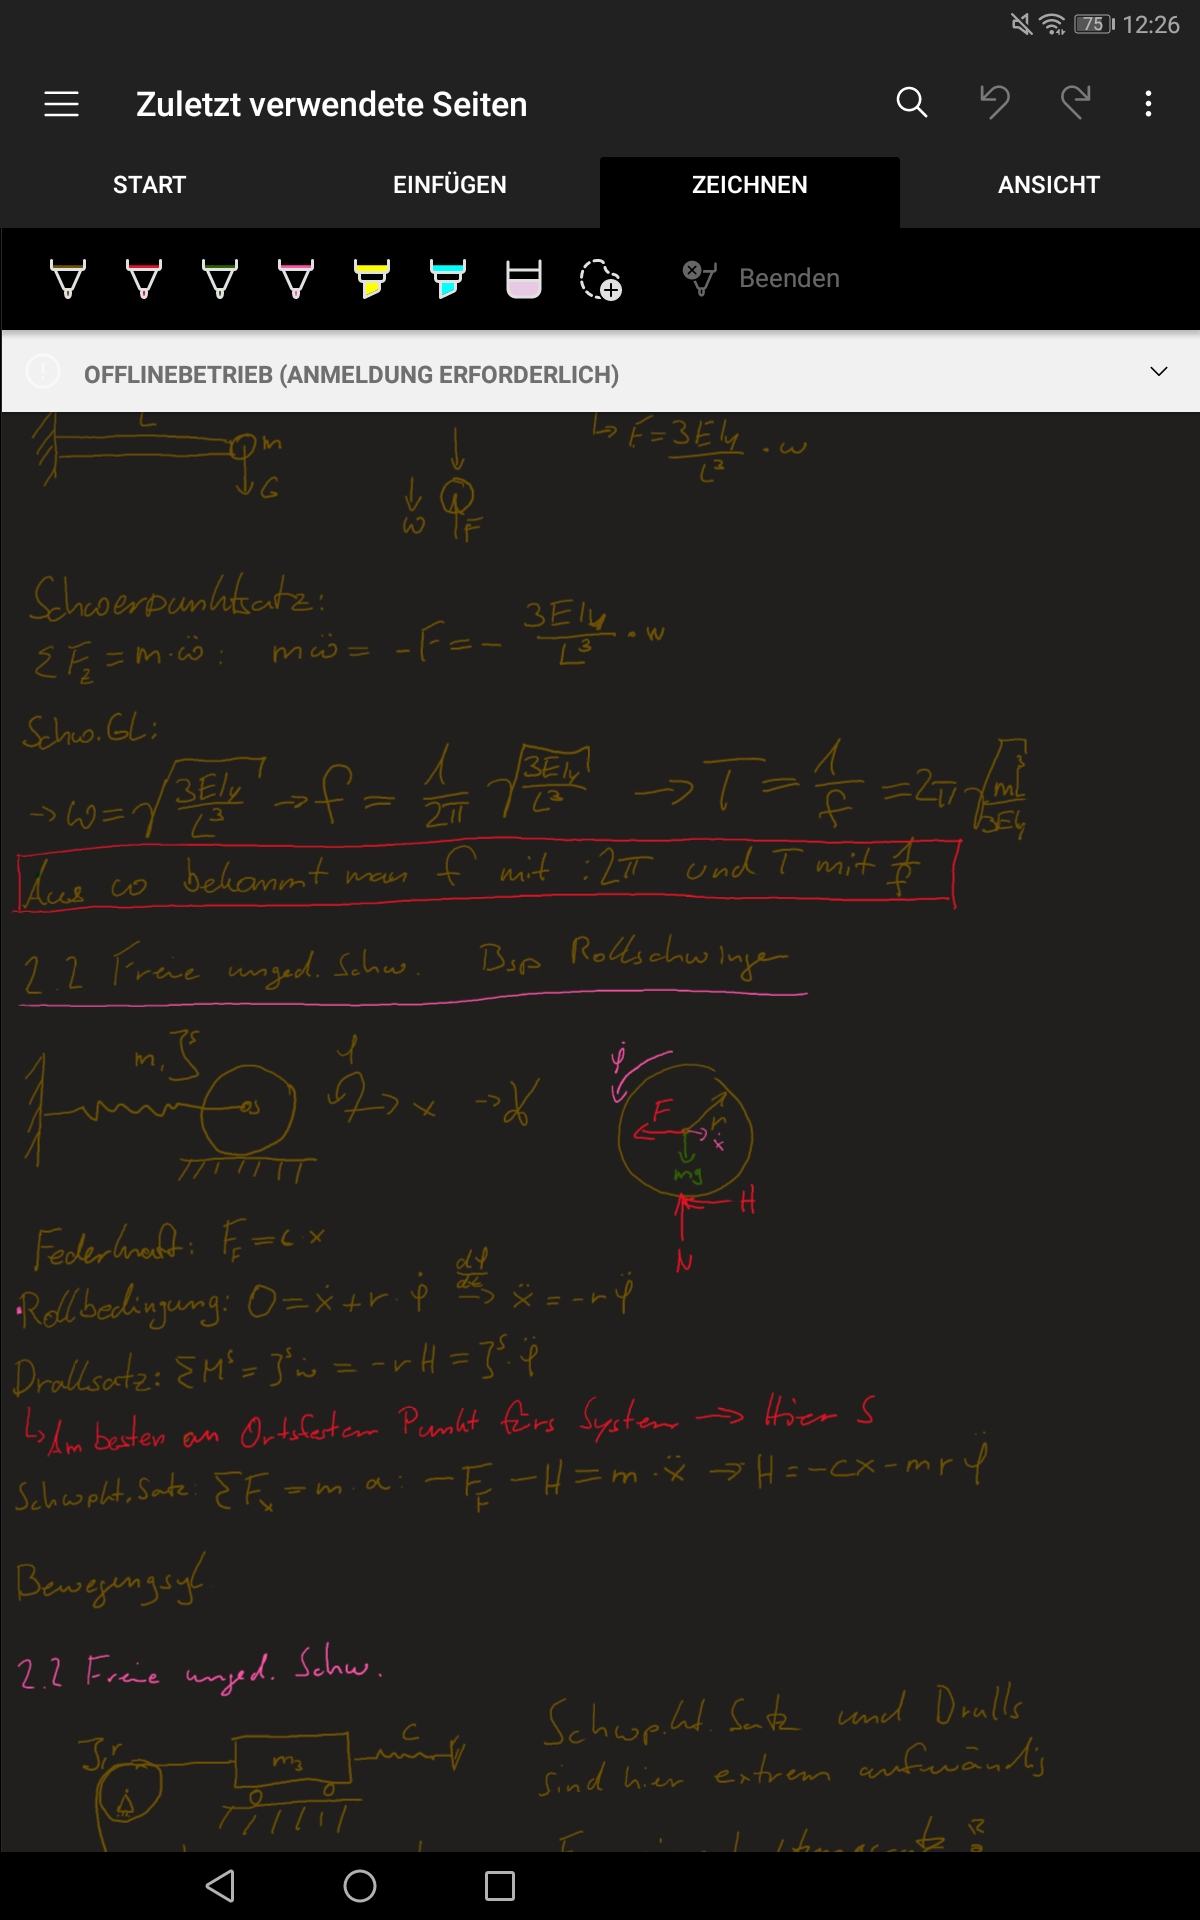 75 12:26
Zuletzt verwendete Seiten
START EINFÜGEN ZEICHNEN ANSICHT
Beenden
OFFLINEBETRIEB (ANMELDUNG ERFORDERLICH)
L m G
w F
↳ F = 3EIy/L³ · w
Schwerpunktsatz:
ΣF_z = m·ẅ: mẅ = -F = - 3EIy/L³ · w
Schw.GL:
→ ω = √(3EIy/L³) → f = 1/2π √(3EIy/L³) → T = 1/f = 2π √(mL³/3EIy)
Aus ω bekommt man f mit :2π und T mit 1/f
2.2 Freie unged. Schw. Bsp Rollschwinger
m, J^s S φ x
φ̇ F r ẋ mg H N
Federkraft: F_F = c·x
Rollbedingung: 0 = ẋ + r·φ̇ dφ/dt → ẍ = -rφ̈
Drallsatz: ΣM^s = J^s ω̇ = -rH = J^s·φ̈
↳ Am besten an Ortsfestem Punkt fürs System → Hier S
Schwpkt.Satz: ΣF_x = m·a: -F_F - H = m·ẍ → H = -cx - mrφ̈
Bewegungsgl
2.2 Freie unged. Schw.
J, r m₃ c
Schwpkt. Satz und Dralls
sind hier extrem aufwändig